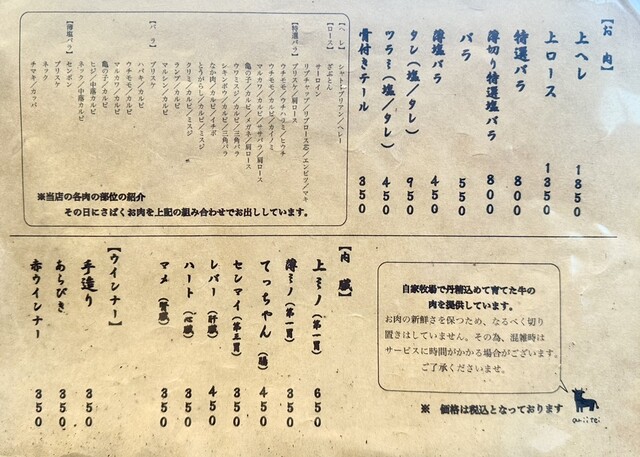 【お 肉】
上ヘレ 1850
上ロース 1350
特選バラ 800
薄切り特選塩バラ 800
バラ 550
薄塩バラ 450
タン（塩／タレ） 950
ツラミ（塩／タレ） 450
骨付きテール 350
【ヘレ】 シャトーブリアン／ヘレー
【ロース】 ざぶとん
サーロイン
リブキャップ／リブロース芯／エンピツ／マキ
【特選バラ】 ブリスケ／肩ロース
ウチモモ／ウチハラミ／ヒウチ
マルカワ／カルビ／カイノミ
ウチモモ／カルビ／ササバラ／肩ロース
亀の子／カルビ／メガネ／肩ロース
ウワミスジ／カルビ／三角バラ
シキンボウ／カルビ／三角バラ
なか肉／カルビ／イチボ
とうがらし／カルビ／ミスジ
クリミ／カルビ／ミスジ
ランプ／カルビ
マルシン／カルビ
【バ ラ】 ブリスケ
ハバキ／カルビ
ウチモモ／カルビ
マルカワ／カルビ
亀の子／カルビ
ヒジ／中落カルビ
ネック／中落カルビ
【薄塩バラ】 センボン
ブリスケ
ネック
チマキ／カッパ
※当店の各肉の部位の紹介
その日にさばくお肉を上記の組み合わせでお出ししています。
自家牧場で丹精込めて育てた牛の
肉を提供しています。
お肉の新鮮さを保つため、なるべく切り
置きはしていません。その為、混雑時は
サービスに時間がかかる場合がございます。
ご了承くださいませ。
amiitei
※ 価格は税込となっております
【内 臓】
上ミノ（第一胃） 650
薄ミノ（第一胃） 350
てっちゃん（腸） 450
センマイ（第三胃） 350
レバー（肝臓） 450
ハート（心臓） 350
マメ（腎臓） 350
【ウインナー】
手造り 350
あらびき 350
赤ウインナー 350